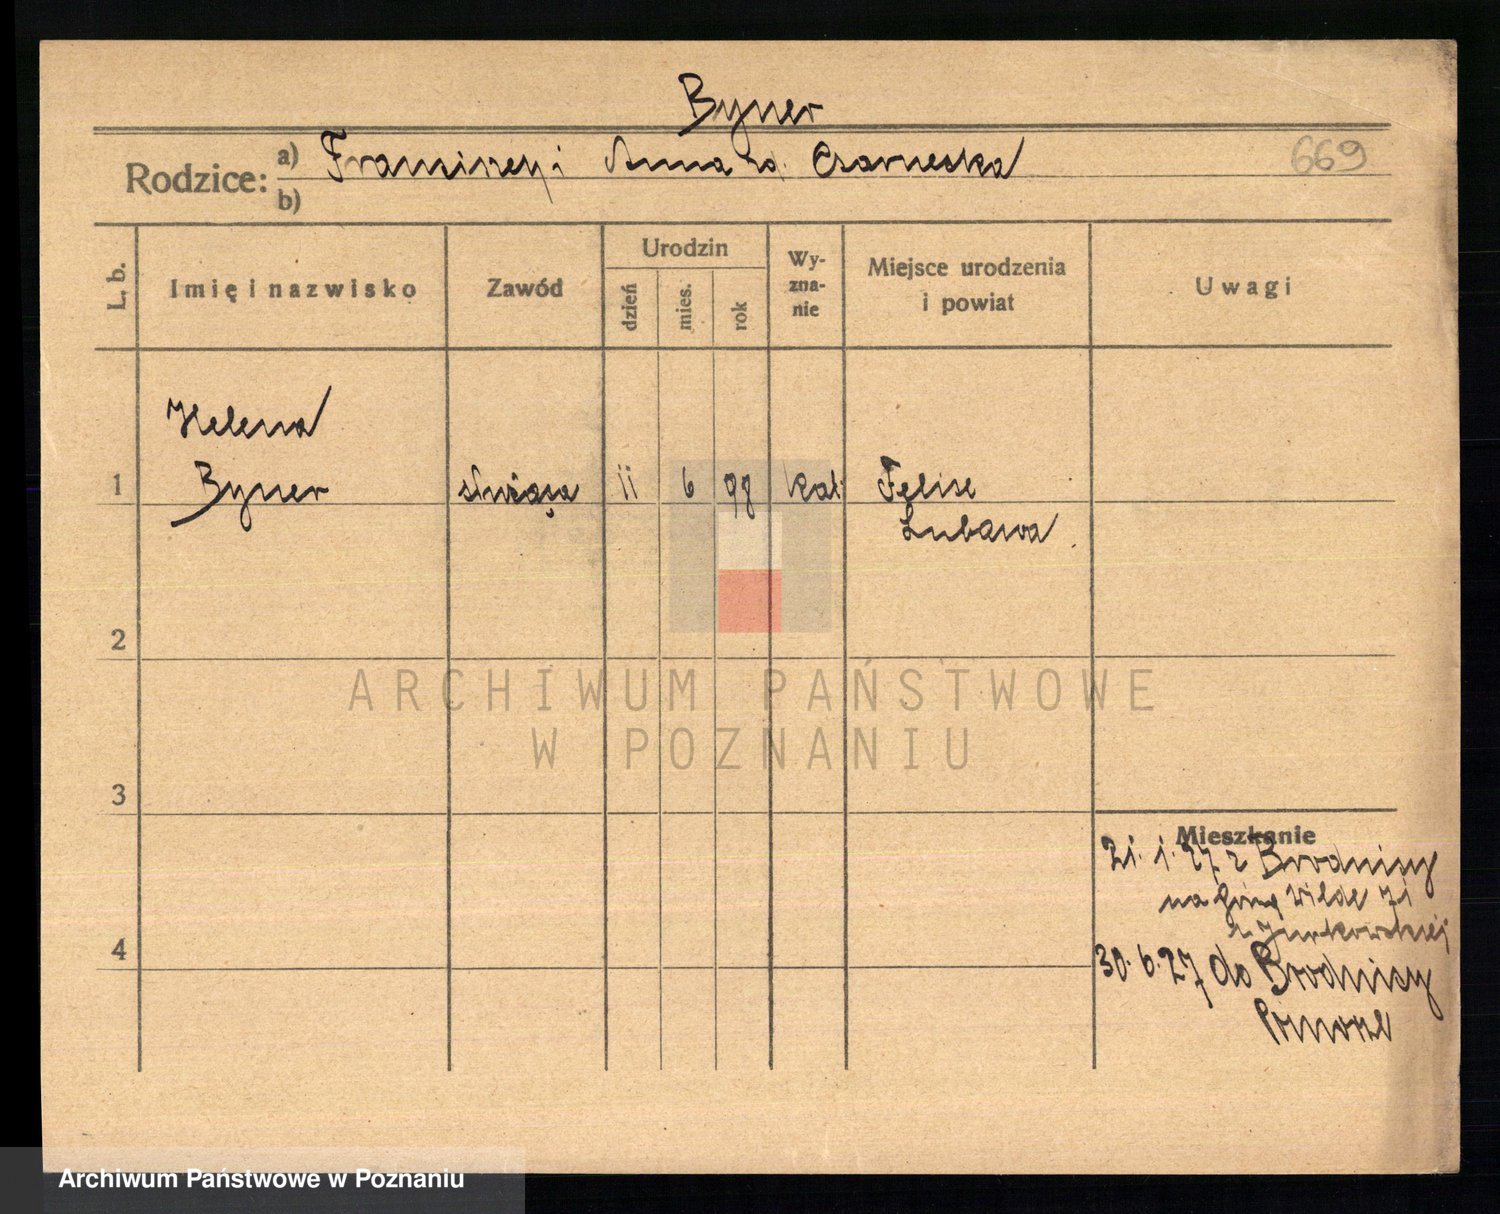 Byner
669
Rodzice: a) Franciszek i Anna zd. Czarneska
b)
L. b. Imię i nazwisko Zawód Urodzin dzień mies. rok Wy-zna-nie Miejsce urodzenia i powiat Uwagi
Helena
1 Byner służąca 11 6 98 kat.
Lubawa
2
ARCHIWUM PAŃSTWOWE
W POZNANIU
3
Mieszkanie
21. 1. 27 z Brodnicy
na Górną Wildę 71
z Jurkowskiej
4
30. 6. 27 do Brodnicy
Pomorze
Archiwum Państwowe w Poznaniu